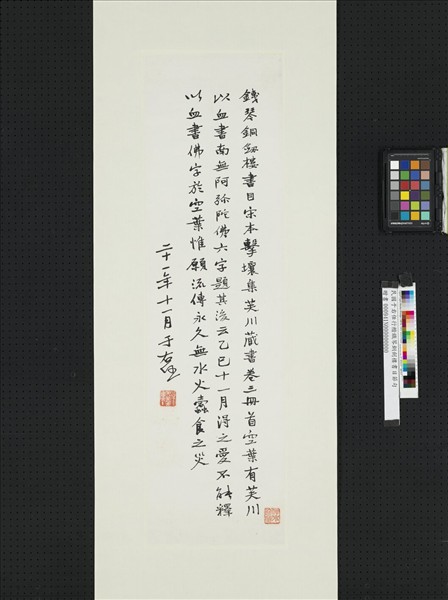 鐵琴銅劍樓書目宋本擊壤集芙川藏書卷三冊首空葉有芙川
以血書南無阿弥陀佛六字題其後云乙巳十一月得之愛不能釋
以血書佛字於空葉惟願流傳永久無水火蠹食之災
二十一年十一月于右任
民國于右任行楷鐵琴銅劍樓書目節句